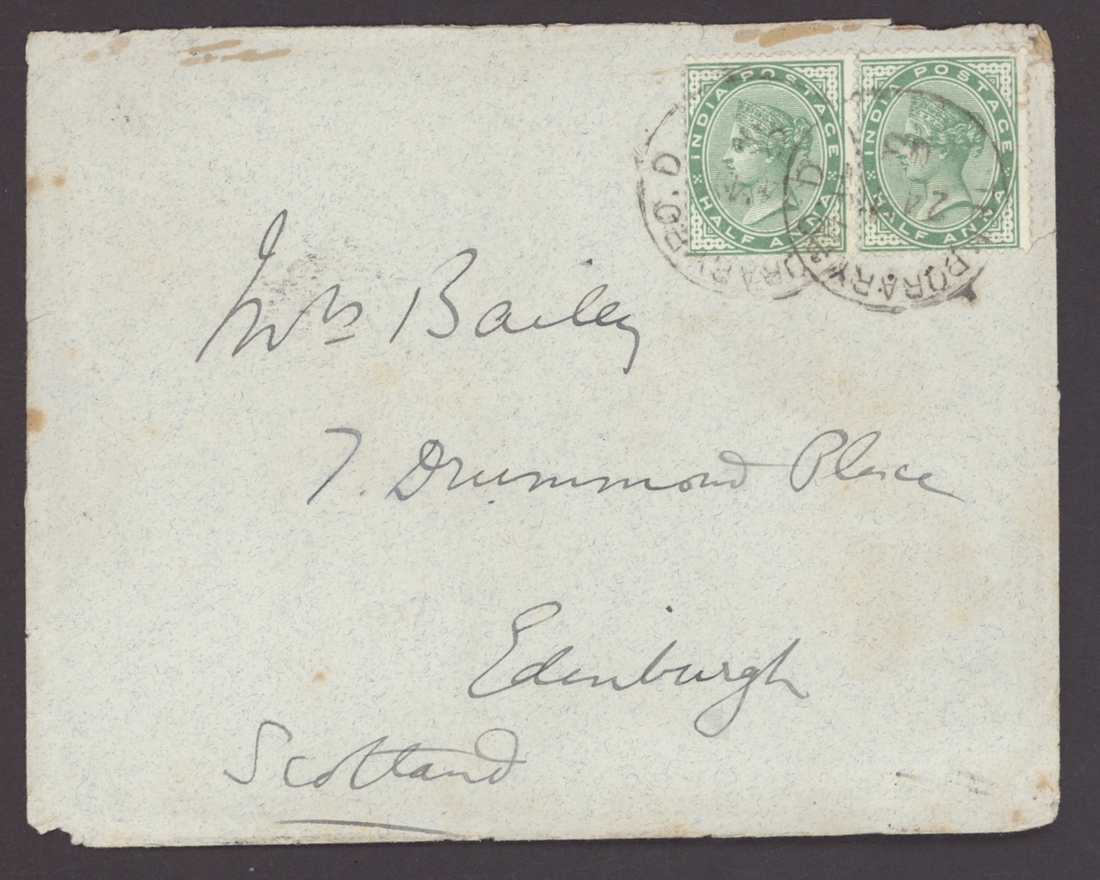 INDIA POSTAGE
HALF ANNA
INDIA POSTAGE
HALF ANNA
P.O. D
24
Mrs Bailey
7. Drummond Place
Edinburgh
Scotland